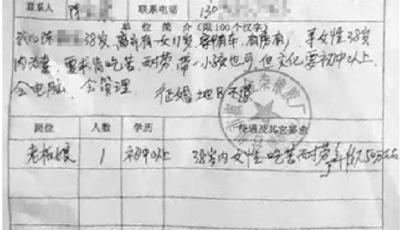 联系人 陈 联系电话 130
单位简介(限100个汉字)
38岁,离异有一女11岁,有车,有房, 女性38岁
内 要求能吃苦耐劳,带一小孩也可,但文化要初中以上,
会电脑,会管理. 征婚地区不限
岗位 人数 学历 待遇及其它要求
老板娘 1 初中以上 38岁内女性吃苦耐劳年收50万左右